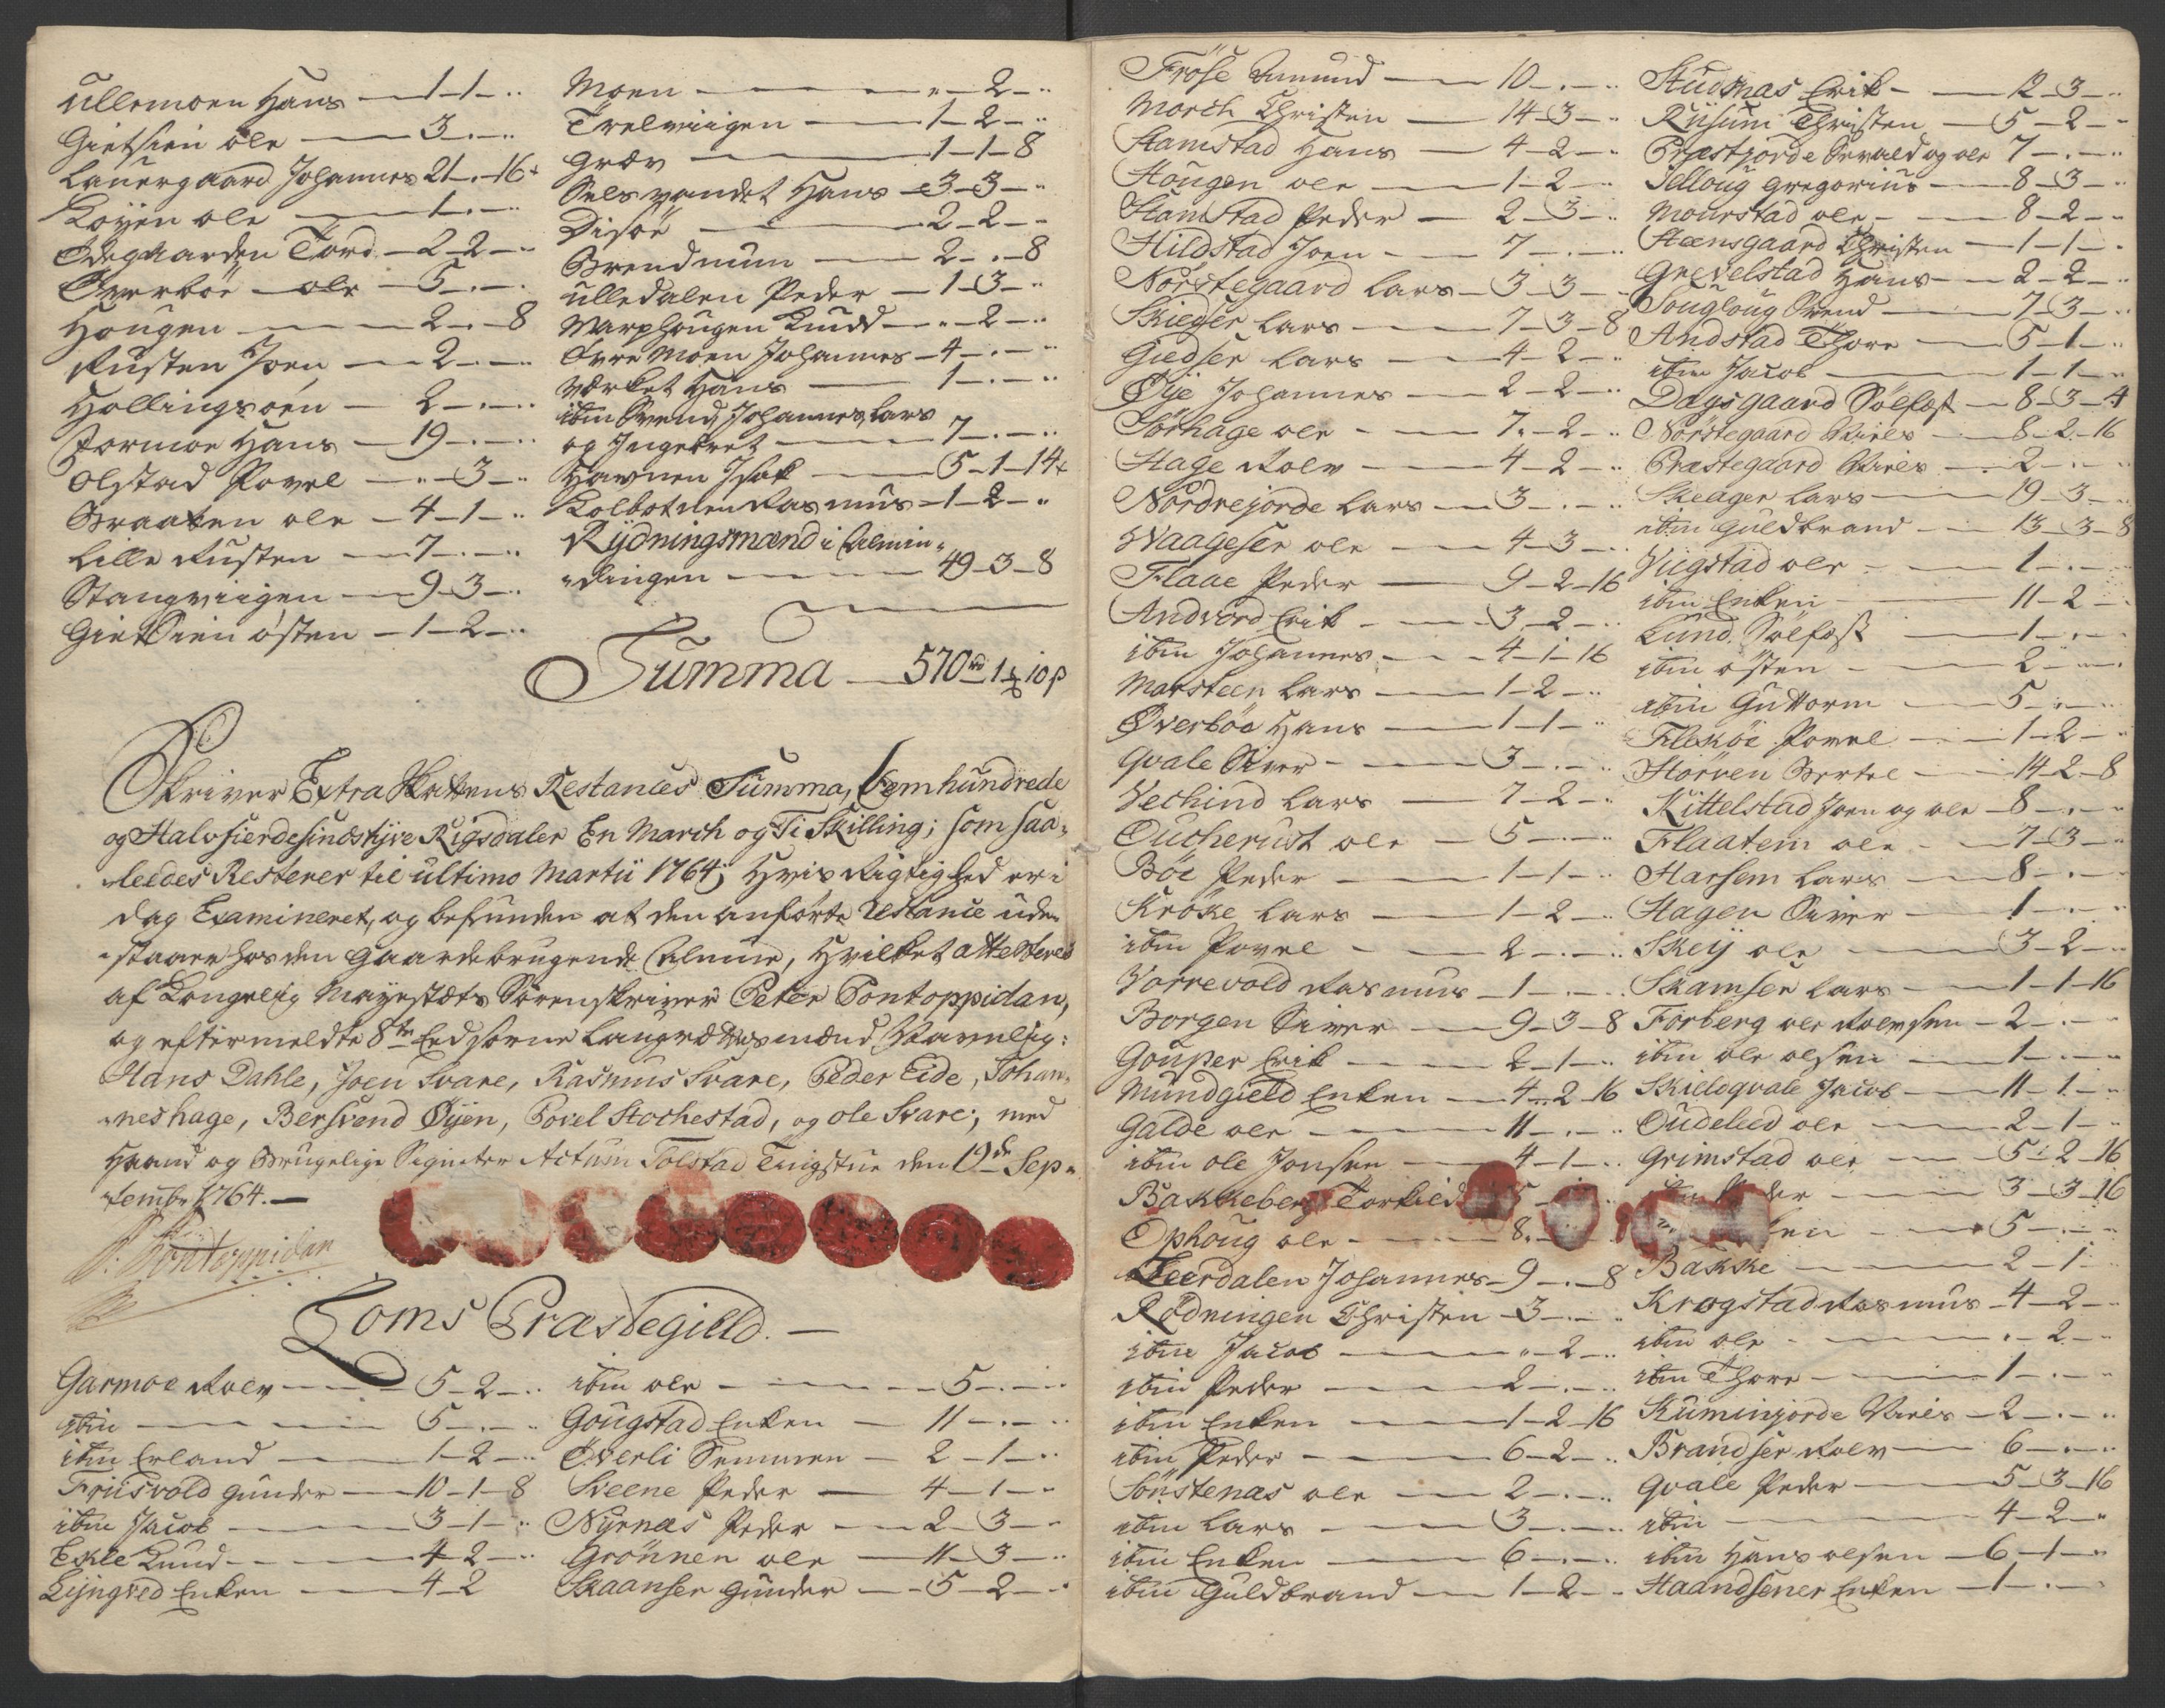 Ullemoen Hans — 1-1-..
Gietsien ole — 3-.-..
Lauergaard Johannes 21-.-16
Loÿen ole — 1-.-..
Ødegaarden Tord — 2-2-..
Øverböe ole — 5-.-..
Hougen — 2-.-8
Rusten Joen — 2-.-..
Hollingsøen — 2-.-..
Formoe Hans — 19-.-..
Olstad Povel — ..-3-..
Braaten ole — 4-1-..
Lille Rusten — 7-.-..
Stangviigen — 9-3-..
Gietsien østen — 1-2-..
Moen — ..-2-..
Trelviigen — 1-2-..
Græv — 1-1-8
Selsvandet Hans — 3-3-..
Disöe — 2-2-..
Brendmun — 2-.-8
Ulledalen Peder — 1-3-..
Warphougen Knud — ..-2-..
Øvre Moen Johannes — 4-.-..
Værket Hans — 1-.-..
ibm Svend, Johannes, Lars
og Ingebret — 7-.-..
Havnen Isak — 5-1-14
Kolbotnen Rasmus — 1-2-..
Rÿdningsmænd i Almin-
dingen — 49-3-8
Summa — 570 rd 1 ƺ 10 β
Skriver Extra Skattens Restances Summa, Femhundrede
og Halvfierdesindstÿve Rigsdaler En March og Ti Skilling; som saa-
leedes Resterer til ultimo Martii 1764; Hvis Rigtighed er i
dag Examineret, og befunden at den anførte Restance ude-
staaer hos den Gaardebrugende Almue, Hvilket attesteres
af Kongelig Mayestæts Sorenskriver Peter Pontoppidan,
og eftermeldte 8te Eedsorne Laugrettesmænd Navnlig:
Hans Dahle, Joen Svare, Rasmus Svare, Peder Eide, Johan-
nes hage, Bersvend Øÿen, Povel Stochestad, og ole Svare; med
Haand og Brugelige Signeter Actum Tolstad Tingstue den 19de Sep-
tembr 1764. —
P. Pontoppidan
Loms Præstegield. —
Garmoe Rolv — 5-2-..
ibm — 5-.-..
ibm Erland — 1-2-..
Friisvold Gunder — 10-1-8
ibm Jacob — 3-1-..
Eckle Knud — 4-2-..
Lÿngved Enken — 4-2
ibm ole — 5-.-..
Gougstad Enken — 11-.-..
Øverli Semmen — 2-1-..
Sveene Peder — 4-1-..
Nÿrnæs Peder — 2-3-..
Grønnen ole — 11-3-..
Skaanser Gunder — 5-2-..
Fröse Amund — 10-.-..
Morch Christen — 14-3-..
Stamstad Hans — 4-2-..
Hougen ole — 1-2-..
Stamstad Peder — 2-3-..
Hildstad Joen — 7-.-..
Nörstegaard Lars — 3-3-..
Skieger Lars — 7-3-8
Giedser Lars — 4-2-..
Øÿe Johannes — 2-2-..
Sörhage ole — 7-2-..
Hage Rolv — 4-2-..
Nordrejorde Lars — 3-.-..
Waageser ole — 4-3-..
Flaae Peder — 9-2-16
Andvord Erik — 3-2-..
ibm Johannes — 4-1-16
Marsteen Lars — 1-2-..
Øverböe Hans — 1-1-..
Qvale Siver — 3-.-..
Vechind Lars — 7-2-..
Oucherust ole — 5-.-..
Böe Peder — 1-1-..
Kröke Lars — 1-2-..
ibm Povel — 2-.-..
Vorrevold Rasmus — 1-.-..
Borgen Siver — 9-3-8
Gouper Erik — 2-1-..
Mundgield Enken — 4-2-16
Galde ole — 11-.-..
ibm ole Jonsen — 4-1-..
Bakkeberg Torkild 5
Ophoug ole — 8
Leerdalen Johannes — 9-.-8
Rödningen Christen — 3-.-..
ibm Jacob — ..-2-..
ibm Peder — 2-.-..
ibm Enken — 1-2-16
ibm Peder — 6-2-..
Sönstenæs ole — 2-.-..
ibm Lars — 3-.-..
ibm Enken — 6-.-..
ibm Guldbrand — 1-2-..
Studnæs Erik — 12-3-..
Rusum Christen — 5-2-..
Præstjorde Sevald og ole 7-.-..
Selloug Gregorius — 8-3-..
Mourstad ole — 8-2-..
Steensgaard Christen — 1-1-..
Grevelstad Hans — 2-2-..
Sougloug Svend — 7-3-..
Andstad Thore — 5-1-..
ibm Jacob — 1-1-..
Dagsgaard Sölfest — 8-3-4
Nörstegaard Niels — 8-2-16
Præstegaard Niels — 2-.-..
Skeager Lars — 19-3-..
ibm Guldbrand — 13-3-8
Viigstad ole — 1-.-..
ibm Enken — 11-2-..
Lund Sölfest — 1-.-..
ibm østen — 2-.-..
ibm Guttorm — 5-.-..
Flekøe Povel — 1-2-..
Hörven Bertel — 14-2-8
Kittelstad Joen og ole — 8-.-..
Flaatem ole — 7-3-..
Harsem Lars — 8-.-..
Hagen Siver — 1-.-..
Skeÿ ole — 3-2-..
Skamser Lars — 1-1-16
Forberg ole Rolvsen — 2-.-..
ibm ole olsen — 1-.-..
Skieleqvale Jacob — 11-1-..
Oudeleed ole — 2-1-..
Grimstad ole — 5-2-16
ibm Peder — 3-3-16
5-.-..
Bakke — 2-1-..
Krogstad Rasmus — 4-2-..
ibm ole — ..-2-..
ibm Thore — 1-.-..
Kumminjorde Niels — 2-.-..
Brandser Rolv — 6-.-..
Qvale Peder — 5-3-16
ibm — 4-2-..
ibm Hans olsen — 6-1-..
Haandsener Enken — 1-.-..